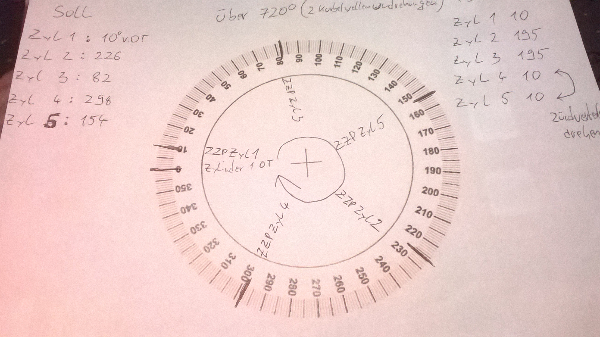 Soll
Zyl 1 : 10° v.OT
Zyl 2 : 226
Zyl 3 : 82
Zyl 4 : 298
Zyl 5 : 154
über 720° (2 Kurbelwellenumdrehungen)
Zyl 1 10
Zyl 2 195
Zyl 3 195
Zyl 4 10
Zyl 5 10
drehen
ZZP Zyl 3
ZZP Zyl 5
ZZP Zyl 1
Zylinder 1 OT
ZZP Zyl 2
ZZP Zyl 4
0
10
20
30
45
60
70
80
90
100
110
120
130
140
150
160
170
180
190
200
210
220
230
240
250
260
270
280
290
300
310
320
330
340
350